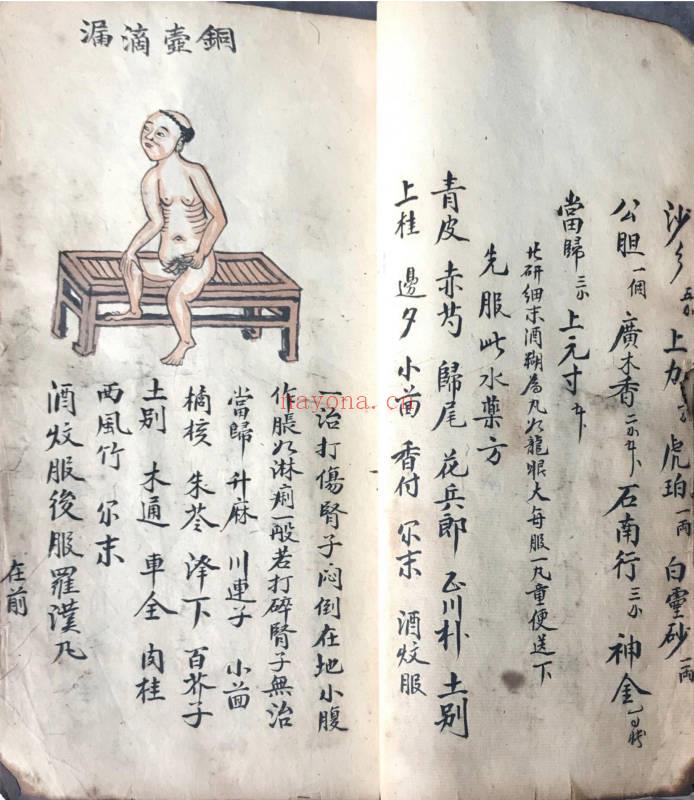 上力 虎珀一両 白靈砂一両
公胆一個 廣木香 石南行 神金
當歸 上元寸
共研細末酒糊為丸如龍眼大每服一丸童便送下
先服此水藥方
青皮 赤芍 歸尾 花兵郎 正川朴 土別
上桂 邊夕 小茴 香付 尔末 酒炆服
銅壺滴漏
一治打傷腎子悶倒在地小腹
作脹如淋痾一般若打碎腎子無治
當歸 升麻 川連子 小茴
橘核 朱苓 泽下 百芥子
土別 木通 車全 肉桂
西風竹 尔末
酒炆服後服羅漢丸
在前
nayona.cn